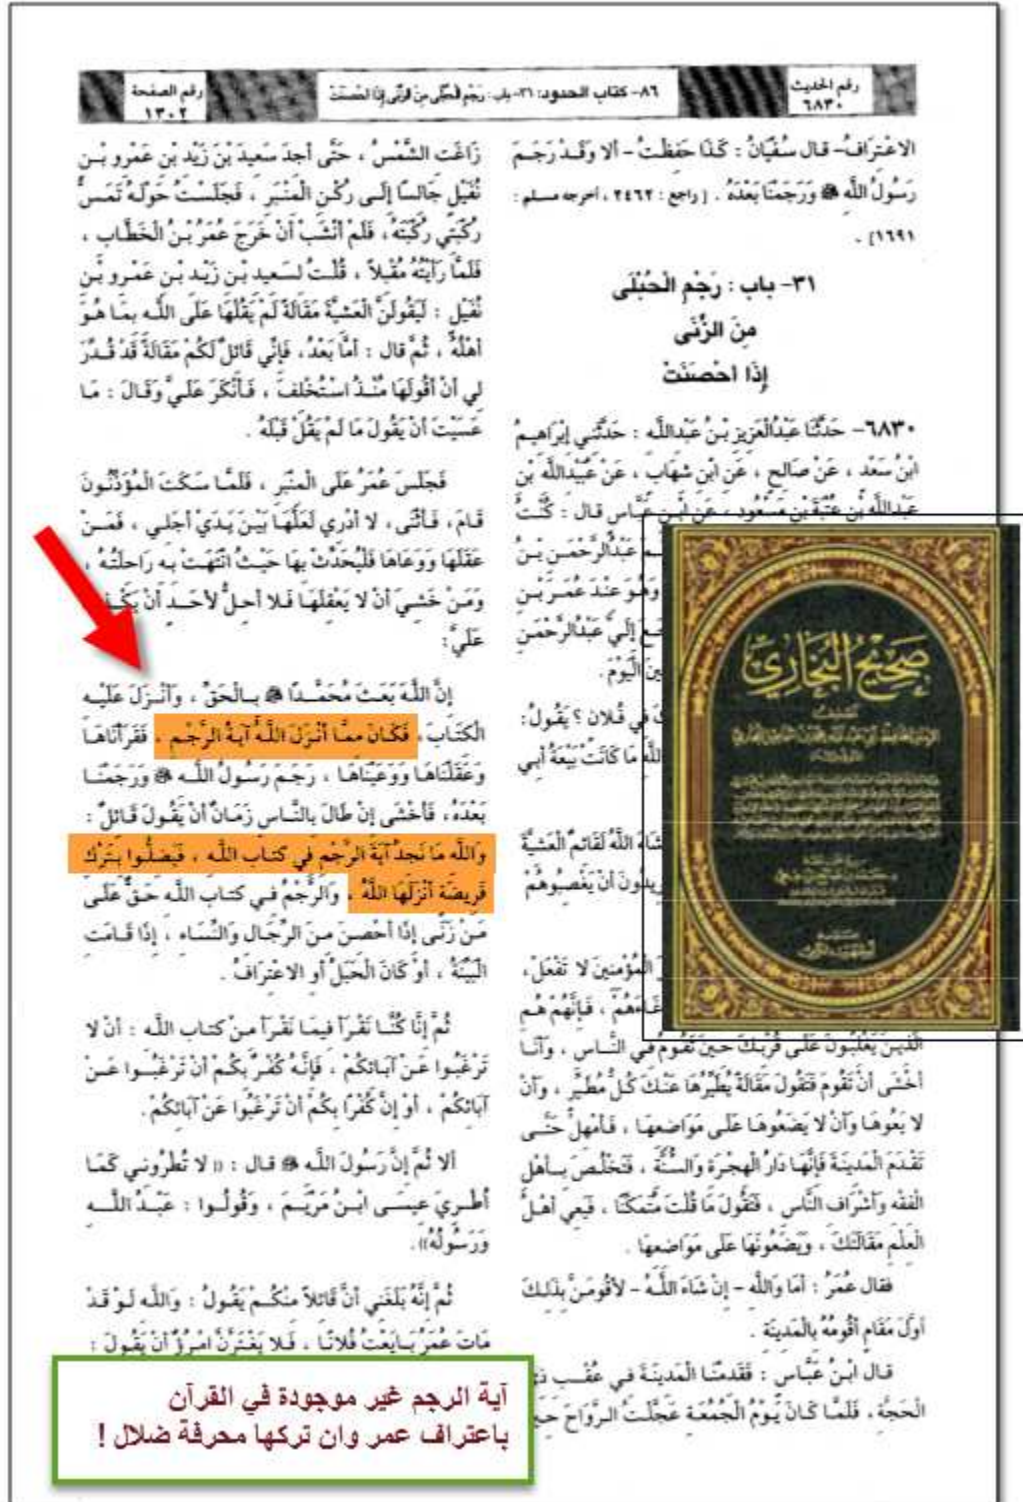 رقم الحديث
٦٨٣٠
٨٦- كتاب الحدود: ٣١- باب: رَجْمِ الْحُبْلَى مِنَ الزِّنَى إِذَا أَحْصَنَتْ
رقم الصفحة
١٣٠٢
الاعْتِرَافُ- قال سُفْيَانُ : كَذَا حَفِظْتُ - ألا وَقَدْ رَجَمَ
رَسُولُ اللَّهِ ﷺ وَرَجَمْنَا بَعْدَهُ . [راجع : ٢٤٦٢ ، أخرجه مسلم :
١٦٩١] .
٣١- باب : رَجْمِ الْحُبْلَى
مِنَ الزِّنَى
إِذَا أحْصَنَتْ
٦٨٣٠- حَدَّثَنَا عَبْدُالْعَزِيزِ بْنُ عَبْدِاللَّهِ : حَدَّثَنِي إِبْرَاهِيمُ
ابْنُ سَعْدٍ ، عَنْ صَالِحٍ ، عَنِ ابْنِ شِهَابٍ ، عَنْ عُبَيْدِاللَّهِ بْنِ
عَبْدِاللَّهِ بْنِ عُتْبَةَ بْنِ مَسْعُودٍ ، عَنِ ابْنِ عَبَّاسٍ قال : كُنْتُ
عَبْدُالرَّحْمَنِ بْنُ
وَهُوَ عِنْدَ عُمَرَ بْنِ
إِلَيَّ عَبْدُالرَّحْمَنِ
الْيَوْمَ.
فِي فُلانٍ ؟ يَقُولُ :
مَا كَانَتْ بَيْعَةُ أبِي
شَاءَ اللَّهُ لَقَائِمٌ الْعَشِيَّةَ
أنْ يَغْصِبُوهُمْ
الْمُؤْمِنِينَ لا تَفْعَلْ ،
فَإِنَّهُمْ هُمِ
الَّذِينَ يَغْلِبُونَ عَلَى قُرْبِكَ حِينَ تَقُومُ فِي النَّاسِ ، وَأنَا
أخْشَى أنْ تَقُومَ فَتَقُولَ مَقَالَةً يُطَيِّرُهَا عَنْكَ كُلُّ مُطَيِّرٍ ، وَأنْ
لا يَعُوهَا وَأنْ لا يَضَعُوهَا عَلَى مَوَاضِعِهَا ، فَأمْهِلْ حَتَّى
تَقْدَمَ الْمَدِينَةَ فَإِنَّهَا دَارُ الْهِجْرَةِ وَالسُّنَّةِ ، فَتَخْلُصَ بِأهْلِ
الْفِقْهِ وَأشْرَافِ النَّاسِ ، فَتَقُولَ مَا قُلْتَ مُتَمَكِّنًا ، فَيَعِي أهْلُ
الْعِلْمِ مَقَالَتَكَ ، وَيَضَعُونَهَا عَلَى مَوَاضِعِهَا .
فقال عُمَرُ : أمَا وَاللَّهِ - إِنْ شَاءَ اللَّهُ - لأقُومَنَّ بِذَلِكَ
أوَّلَ مَقَامٍ أقُومُهُ بِالْمَدِينَةِ .
قال ابْنُ عَبَّاسٍ : فَقَدِمْنَا الْمَدِينَةَ فِي عُقْبِ
الْحَجَّةِ ، فَلَمَّا كَانَ يَوْمُ الْجُمُعَةِ عَجَّلْتُ الرَّوَاحَ
زَاغَتِ الشَّمْسُ ، حَتَّى أجِدَ سَعِيدَ بْنَ زَيْدِ بْنِ عَمْرِو بْنِ
نُفَيْلٍ جَالِسًا إِلَى رُكْنِ الْمِنْبَرِ ، فَجَلَسْتُ حَوْلَهُ تَمَسُّ
رُكْبَتِي رُكْبَتَهُ، فَلَمْ أنْشَبْ أنْ خَرَجَ عُمَرُ بْنُ الْخَطَّابِ ،
فَلَمَّا رَأيْتُهُ مُقْبِلاً ، قُلْتُ لِسَعِيدِ بْنِ زَيْدِ بْنِ عَمْرِو بْنِ
نُفَيْلٍ : لَيَقُولَنَّ الْعَشِيَّةَ مَقَالَةً لَمْ يَقُلْهَا عَلَى اللَّهِ بِمَا هُوَ
أهْلُهُ ، ثُمَّ قال : أمَّا بَعْدُ، فَإِنِّي قَائِلٌ لَكُمْ مَقَالَةً قَدْ قُدِّرَ
لِي أنْ أقُولَهَا مُنْذُ اسْتُخْلِفَ ، فَأنْكَرَ عَلَيَّ وَقَالَ : مَا
عَسَيْتَ أنْ يَقُولَ مَا لَمْ يَقُلْ قَبْلَهُ .
فَجَلَسَ عُمَرُ عَلَى الْمِنْبَرِ ، فَلَمَّا سَكَتَ الْمُؤَذِّنُونَ
قَامَ، فَأثْنَى، لا أدْرِي لَعَلَّهَا بَيْنَ يَدَيْ أجَلِي ، فَمَنْ
عَقَلَهَا وَوَعَاهَا فَلْيُحَدِّثْ بِهَا حَيْثُ انْتَهَتْ بِهِ رَاحِلَتُهُ ،
وَمَنْ خَشِيَ أنْ لا يَعْقِلَهَا فَلا أحِلُّ لأحَدٍ أنْ
عَلَيَّ :
إِنَّ اللَّهَ بَعَثَ مُحَمَّدًا ﷺ بِالْحَقِّ ، وَأنْزَلَ عَلَيْهِ
الْكِتَابَ ، فَكَانَ مِمَّا أنْزَلَ اللَّهُ آيَةُ الرَّجْمِ ، فَقَرَأنَاهَا
وَعَقَلْنَاهَا وَوَعَيْنَاهَا ، رَجَمَ رَسُولُ اللَّهِ ﷺ وَرَجَمْنَا
بَعْدَهُ، فَأخْشَى إِنْ طَالَ بِالنَّاسِ زَمَانٌ أنْ يَقُولَ قَائِلٌ :
وَاللَّهِ مَا نَجِدُ آيَةَ الرَّجْمِ فِي كِتَابِ اللَّهِ ، فَيَضِلُّوا بِتَرْكِ
فَرِيضَةٍ أنْزَلَهَا اللَّهُ ، وَالرَّجْمُ فِي كِتَابِ اللَّهِ حَقٌّ عَلَى
مَنْ زَنَى إِذَا أحْصِنَ مِنَ الرِّجَالِ وَالنِّسَاءِ ، إِذَا قَامَتِ
الْبَيِّنَةُ ، أوْ كَانَ الْحَبَلُ أوِ الاعْتِرَافُ .
ثُمَّ إِنَّا كُنَّا نَقْرَأُ فِيمَا نَقْرَأُ مِنْ كِتَابِ اللَّهِ : أنْ لا
تَرْغَبُوا عَنْ آبَائِكُمْ ، فَإِنَّهُ كُفْرٌ بِكُمْ أنْ تَرْغَبُوا عَنْ
آبَائِكُمْ ، أوْ إِنَّ كُفْرًا بِكُمْ أنْ تَرْغَبُوا عَنْ آبَائِكُمْ.
ألا ثُمَّ إِنَّ رَسُولَ اللَّهِ ﷺ قال : (( لا تُطْرُونِي كَمَا
أُطْرِيَ عِيسَى ابْنُ مَرْيَمَ ، وَقُولُوا : عَبْدُ اللَّهِ
وَرَسُولُهُ)).
ثُمَّ إِنَّهُ بَلَغَنِي أنَّ قَائِلاً مِنْكُمْ يَقُولُ : وَاللَّهِ لَوْ قَدْ
مَاتَ عُمَرُ بَايَعْتُ فُلانًا ، فَلا يَغْتَرَّنَّ امْرُؤٌ أنْ يَقُولَ :
صَحِيحُ الْبُخَارِيِّ
آية الرجم غير موجودة في القرآن
باعتراف عمر وان تركها محرفة ضلال !